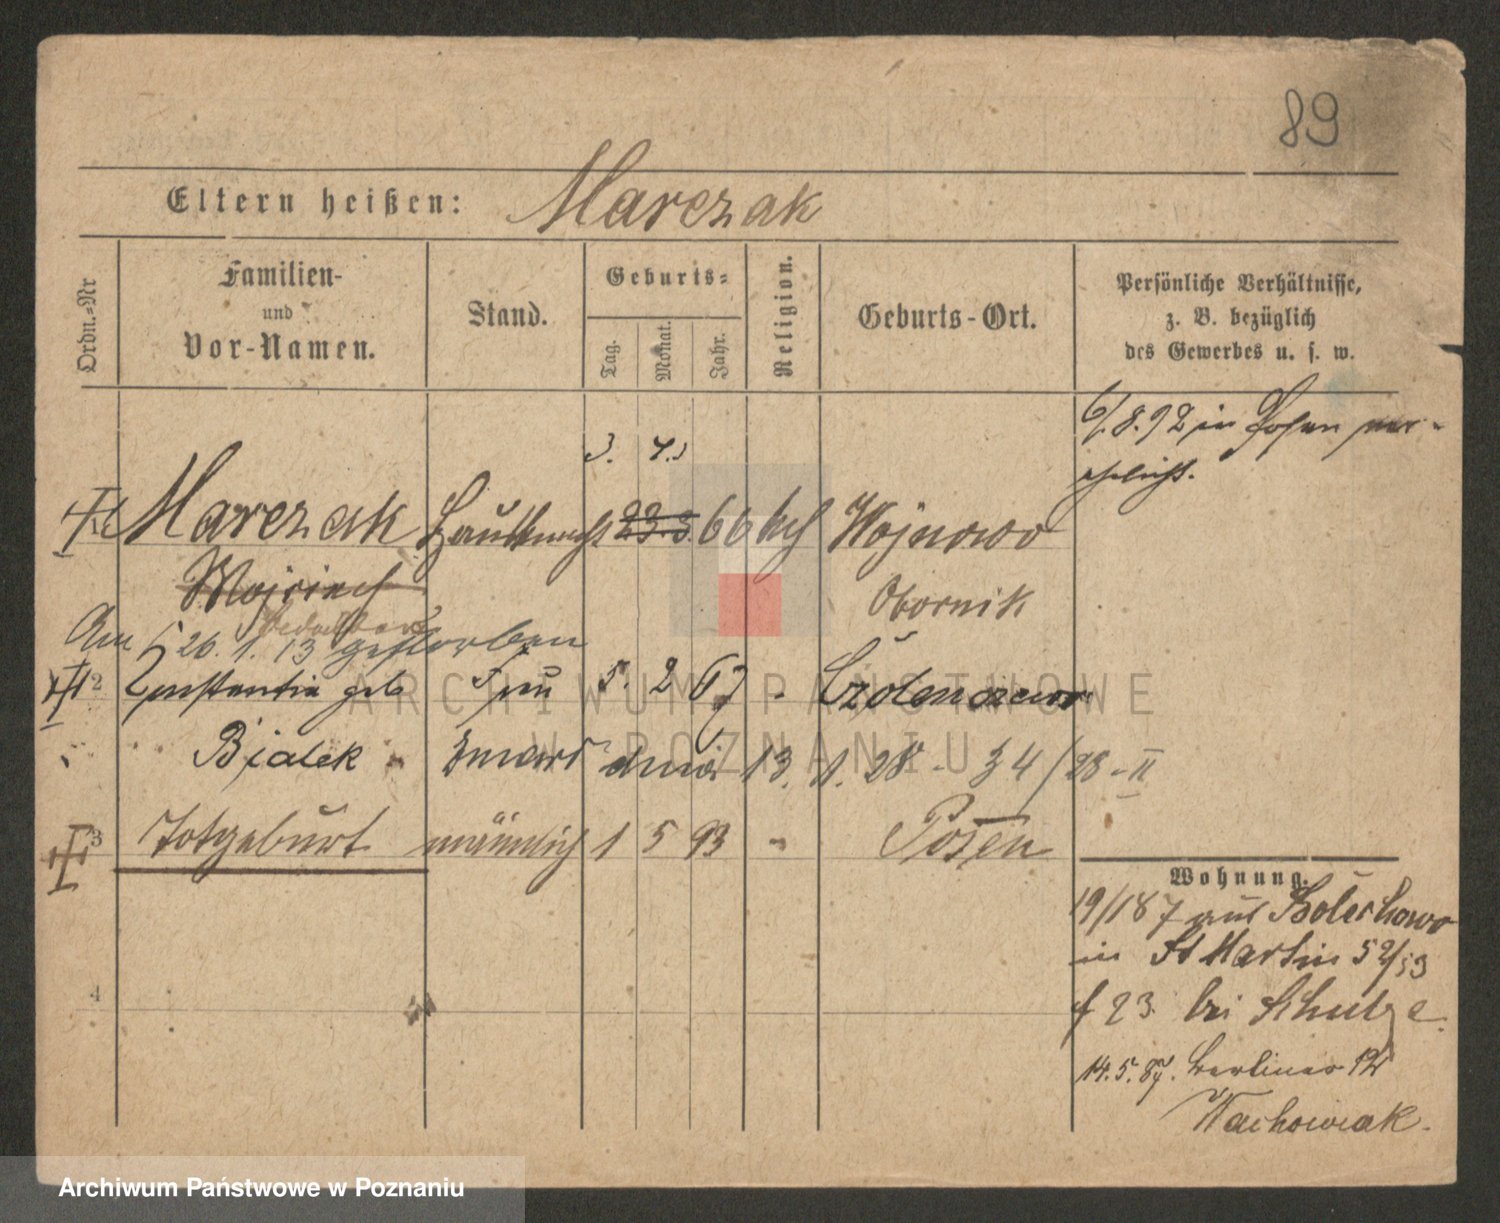 89
Eltern heißen: Marczak
Ordn.-Nr
Familien-
und
Vor-Namen.
Stand.
Geburts-
Tag.
Monat.
Jahr.
Religion.
Geburts-Ort.
Persönliche Verhältnisse,
z. B. bezüglich
des Gewerbes u. s. w.
6/8.92 in Posen ver-
ehelicht.
3. 4.
1 Marczak Haushalter 23.3. 66 kath Wojnowo
Obornik
Am 26. 1. 13 gestorben
2 Konstantia geb 5. 2 67 -
Bialek 13. 1. 28 - 34/28 - II
3 Totgeburt männlich 1 5 93 - Posen
Wohnung.
19/1 87 aus Bolechowo
in St Martin 52/53
f 23 bei Schulze.
4
14.5.87. Berliner 12
Wachowiak.
ARCHIWUM PAŃSTWOWE
W POZNANIU
Archiwum Państwowe w Poznaniu